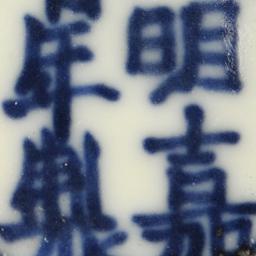 明嘉
年製